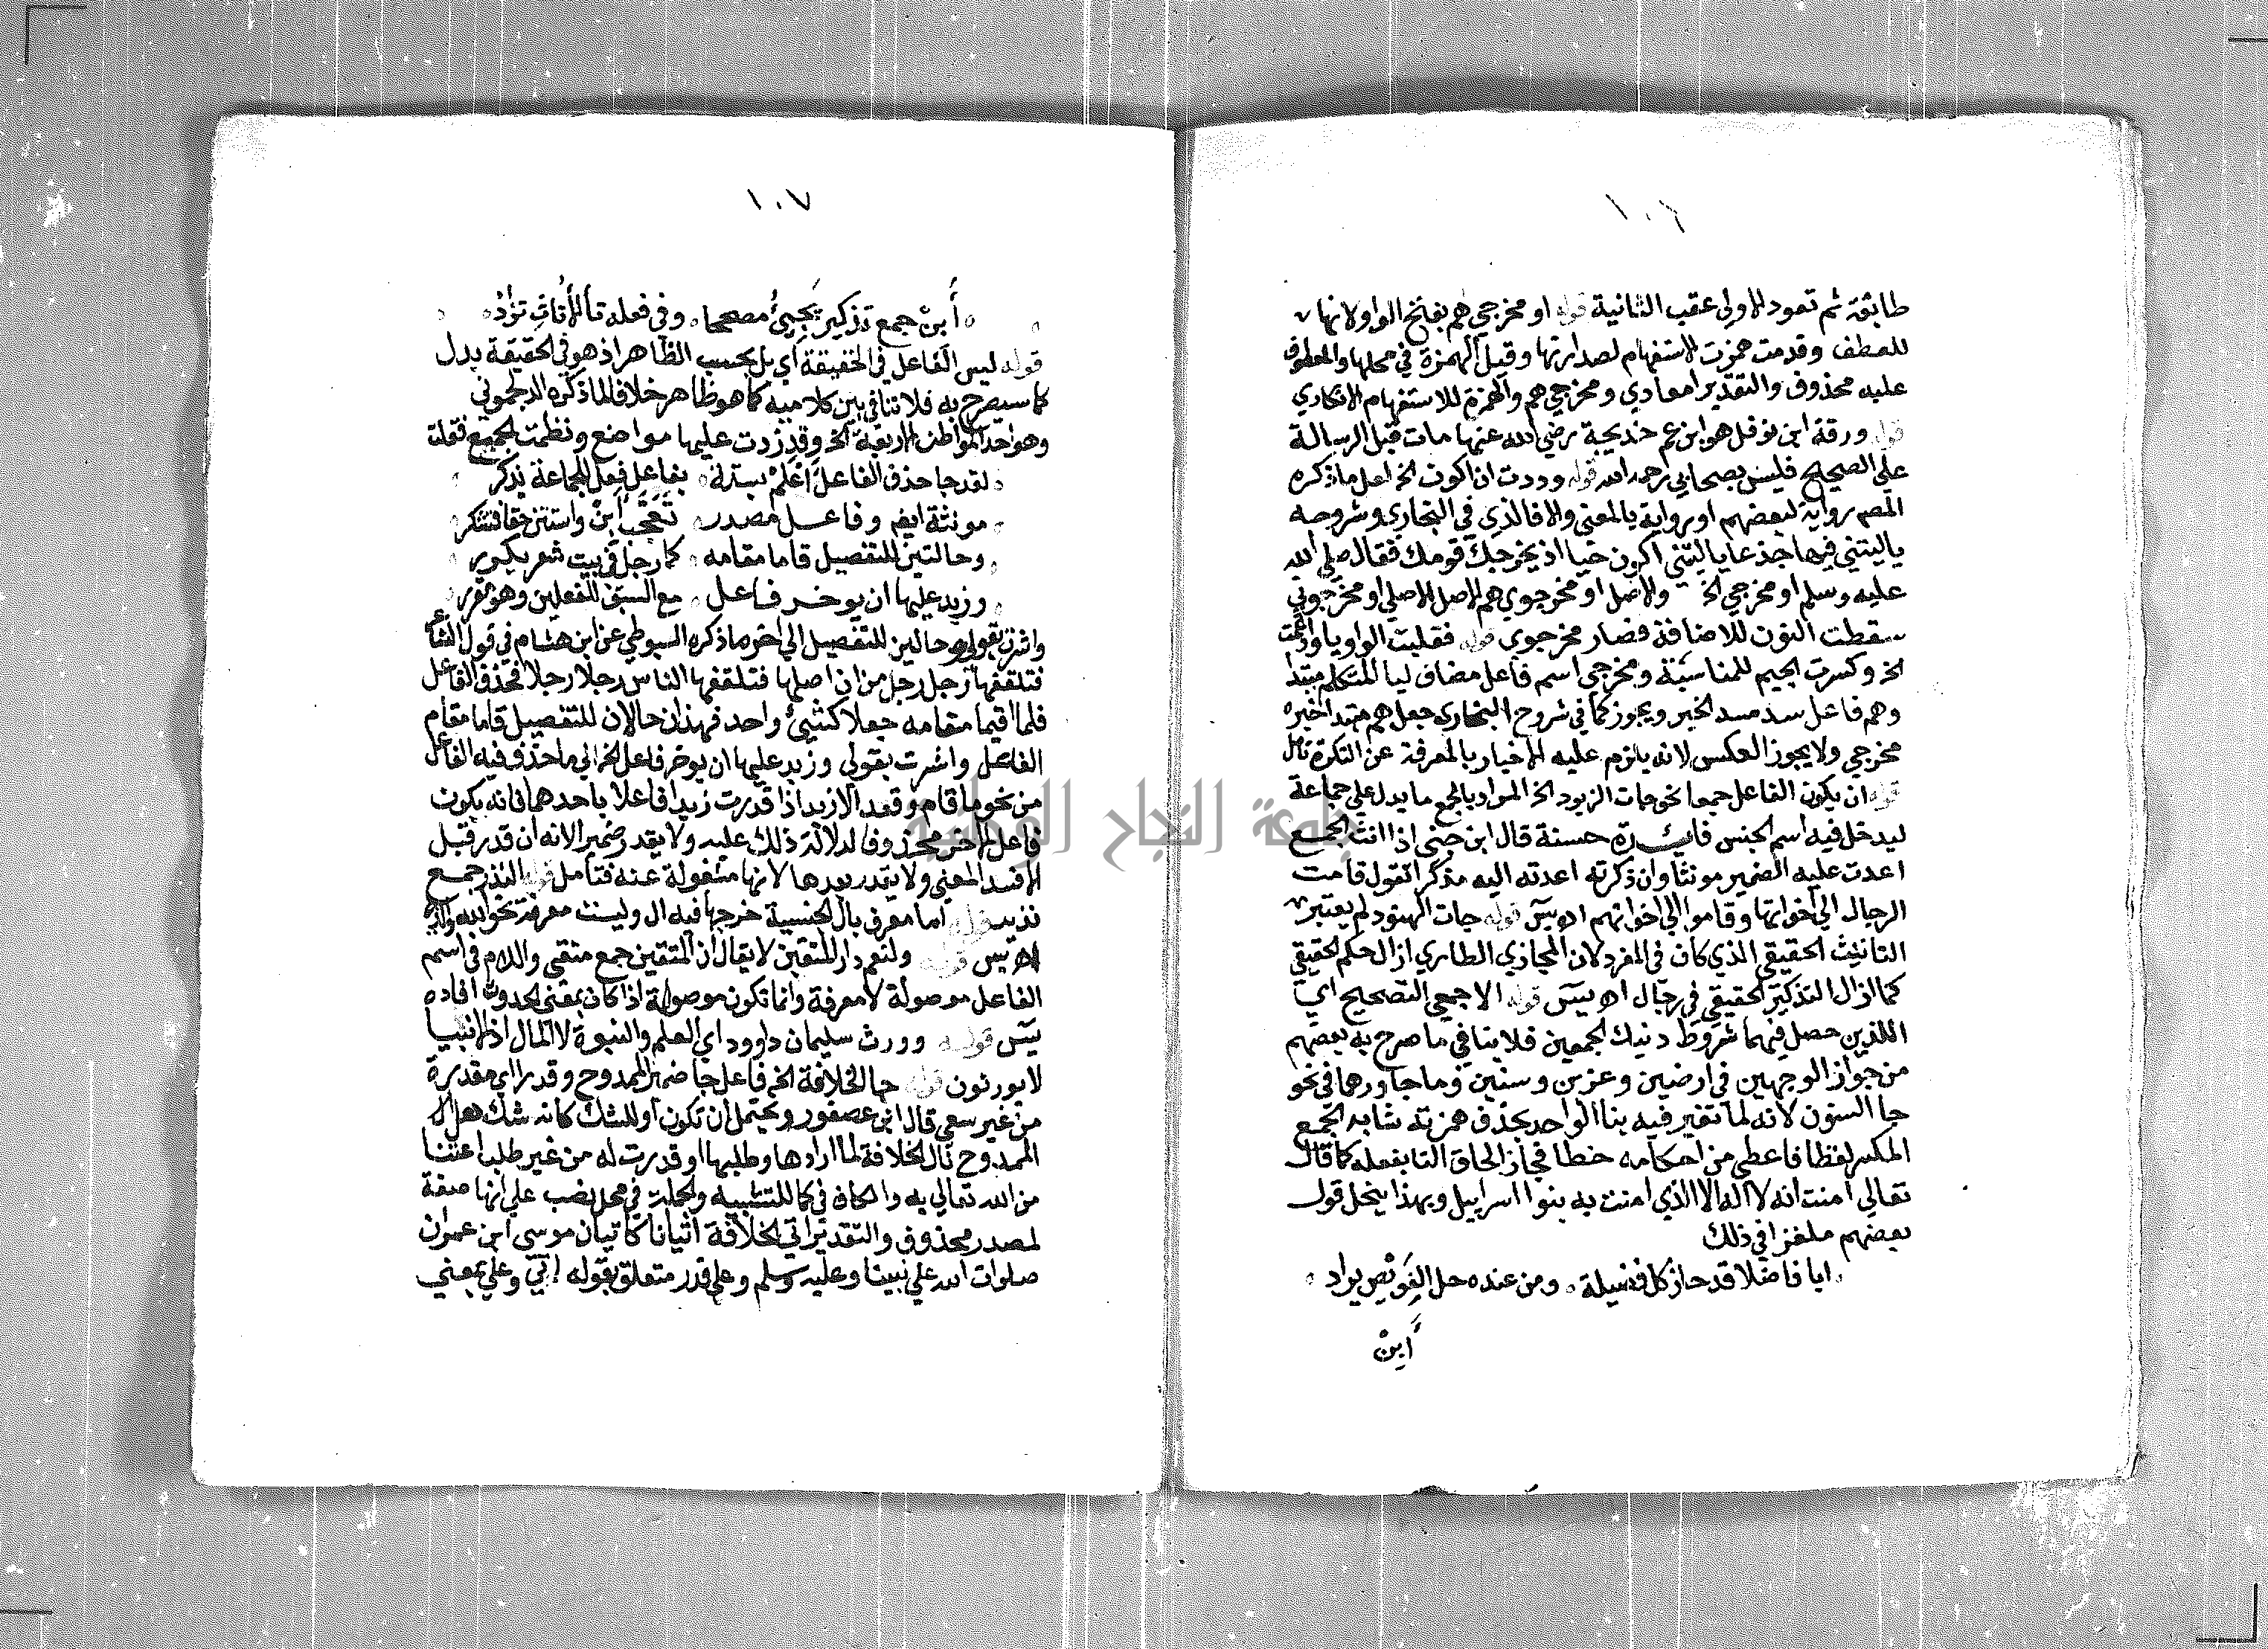 ١٠٦
طابقة ثم تعود للاولى عقب الثانية قوله او مخرجي هم بفتح الواو لانها
للعطف وقدمت همزت الاستفهام لصدارتها وقيل الهمزة في محلها والمعطوف
عليه محذوف والتقدير امعادي ومخرجي هم والهمزة للاستفهام الانكاري
قوله ورقة ابن نوفل هو ابن عم خديجة رضي الله عنها مات قبل الرسالة
على الصحيح فليس بصحابي رحمه الله قوله وددت ان اكون الخ لعل ما ذكره
المص رواية لبعضهم او رواية بالمعنى والا فالذي في البخاري وشروحه
يا ليتني فيها جذعا يا ليتني اكون حيا اذ يخرجك قومك فقال صلى الله
عليه وسلم او مخرجي الخ والاصل او مخرجوي هم الاصل الاصلي او مخرجوني
سقطت النون للاضافة فصار مخرجوي قوله فقلبت الواو يا وادغمت
الخ وكسرت الجيم للمناسبة ومخرجي اسم فاعل مضاف ليا المتكلم مبتدا
وهم فاعل سد مسد الخبر ويجوز كما في شروح البخاري جعل هم مبتدا خبره
مخرجي ولا يجوز العكس لانه يلزم عليه الاخبار بالمعرفة عن النكرة تامل
قوله ان يكون الفاعل جمعا نحو جات الزيود الخ المراد بالجمع ما يدل على جماعة
ليدخل فيه اسم الجنس فايدة حسنة قال ابن جني اذا انث الجمع
اعدت عليه الضمير مونثا وان ذكرته اعدته اليه مذكرا تقول قامت
الرجال الى اخواتها وقاموا الى اخواتهم اه يس قوله جات الهنود لم يعتبر
التانيث الحقيقي الذي كان في المفرد لان المجازي الطاري ازال حكم الحقيقي
كما ازال التذكير الحقيقي في رجال اه يس قوله الا جمعي التصحيح اي
اللذين حصل فيهما شروط ذنيك الجمعين فلا ينافي ما صرح به بعضهم
من جواز الوجهين في ارضين وعزين وسنين وما جاورهما في نحو
جا السنون لانه لما تغير فيه بنا الواحد بحذف همزته شابه الجمع
المكسر لفظا فاعطي من احكامه حظا فجاز الحاق التا بفعله كما قال
تعالى امنت انه لا اله الا الذي امنت به بنوا اسرايل وبهذا ينحل قول
بعضهم ملغزا في ذلك
ايا فاضلا قد حاز كل فضيلة ومن عنده حل العويص يراد
أبن
١٠٧
أبن جمع تذكير يجيئ مصححا وفي فعله تا الاناث تزاد
قوله ليس الفاعل في الحقيقة اي بل بحسب الظاهر اذ هو في الحقيقة بدل
كما سيصرح به فلا تنافي بين كلاميه كما هو ظاهر خلافا لما ذكره الدلجموني
وهو احد المواطن الاربعة الخ وقد زدت عليها مواضع ونظمت الجميع فقلت
لقد جا حذف الفاعل اعلم بستة بفاعل فعل للجماعة يذكر
مونثة ايضا وفاعل مصدر تعجب ابن واستثن حقا فتشكر
وحالتين للتفصيل قاما مقامه كما رجل في بيت شعر يكرر
وزيد عليها ان يوخر فاعل مع السبق للفعلين وهو مقرر
واشرت بقولي وحالين للتفصيل الى اخره ما ذكره السيوطي عن ابن هشام في قول الشاعر
فتلقفها رجل رجل من ان اصلها فتلقفها الناس رجلا رجلا فحذف الفاعل
فلما اقيما مقامه جعلا كشيئ واحد فهذان حالان للتفصيل قاما مقام
الفاعل واشرت بقولي وزيد عليها ان يوخر فاعل الخ الى ما حذف فيه الفاعل
من نحو ما قام وقعد الا زيد اذا قدرت زيدا فاعلا باحدهما فانه يكون
فاعل الاخر محذوفا لدلالة ذلك عليه ولا يقدر ضمير لانه ان قدر قبل
الا فسد المعنى ولا يقدر بعدها لانها مشغولة عنه فتامل قوله النذر جمع
نذير قوله اما معرف بال الجنسية خرج ما فيه ال وليست معرفة نحو الله والذي
اه يس قوله ولنعم دار المتقين لا يقال ان المتقين جمع متقي واللام في اسم
الفاعل موصولة لا معرفة وانما تكون موصولة اذا كان بمعنى الحدوث افاده
يس قوله وورث سليمان داوود اي العلم والنبوة لا المال اذ الانبيا
لا يورثون قوله جا الخلافة الخ فاعل جا ضمير الممدوح وقدرا اي مقدرة
من غير سعي قال ابن عصفور ويحتمل ان تكون او للشك كانه شك هل
الممدوح نال الخلافة لما ارادها وطلبها او قدرت له من غير طلب اعتنا
من الله تعالى به والكاف في كما للتشبيه والجملة في محل نصب على انها صفة
لمصدر محذوف والتقدير اتى الخلافة اتيانا كاتيان موسى ابن عمران
صلوات الله على نبينا وعليه وسلم وعلى قدر متعلق بقوله اتى وعلى بمعنى
جامعة النجاح الوطنية